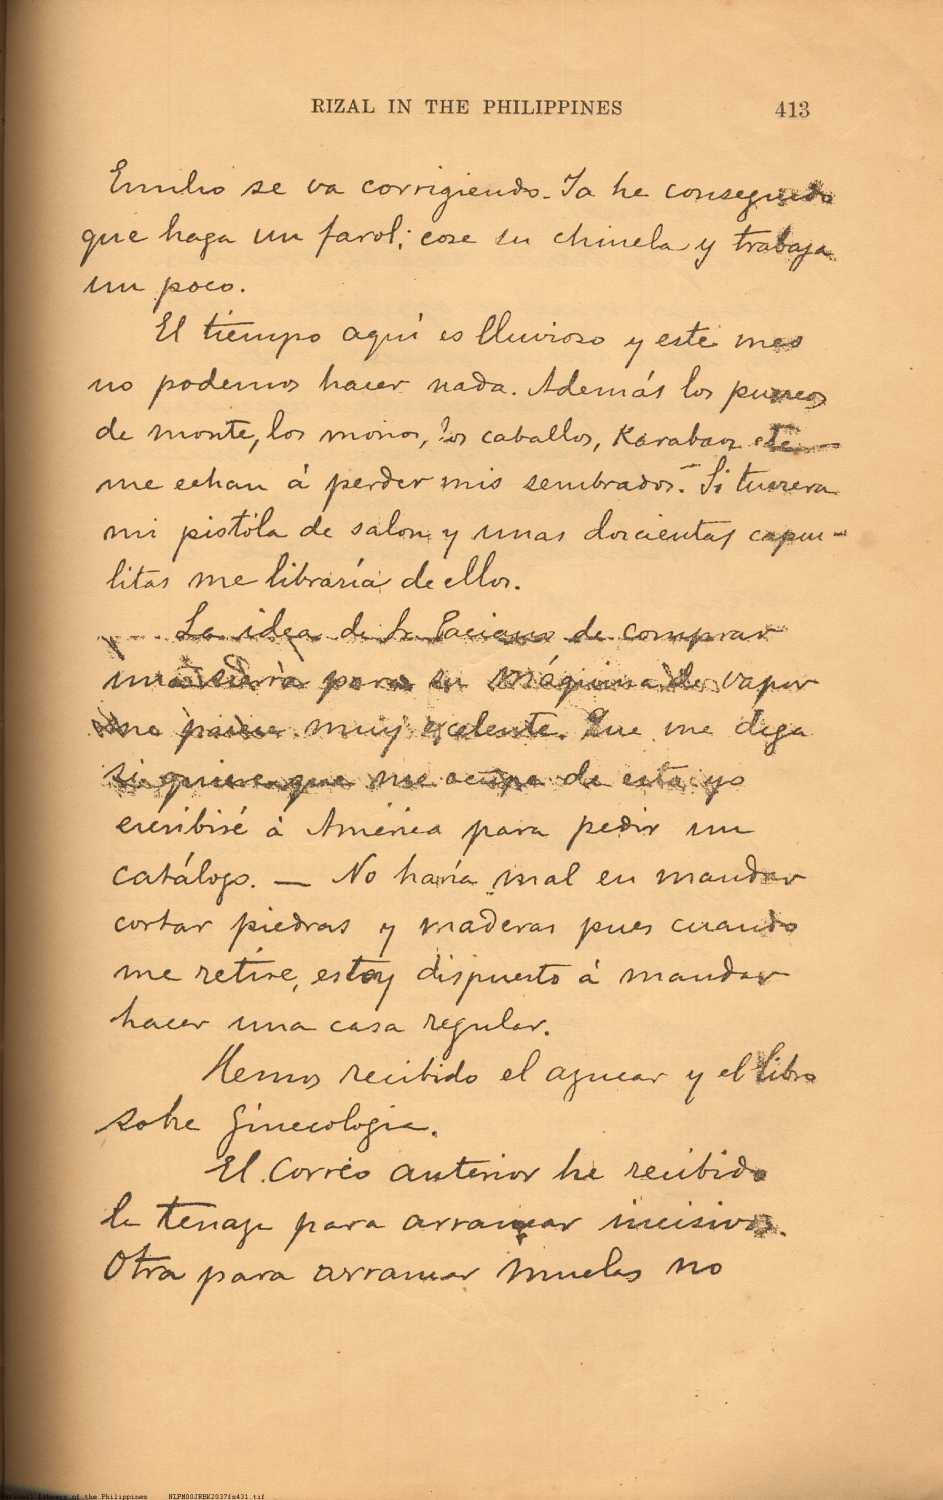 RIZAL IN THE PHILIPPINES 413
Emilio se va corrigiendo. Ya he conseguido
que haga un farol; cose su chinela y trabaja
un poco.
El tiempo aquí es lluvioso y este mes
no podemos hacer nada. Además los puercos
de monte, los monos, los caballos, Karabaos etc
me echan á perder mis sembrados. Si tuviera
mi pistola de salon y unas doscientas capsu-
litas me libraría de ellos.
La idea de Sr. Paciano de comprar
una sierra para su máquina de vapor
me parece muy excelente. Que me diga
si quiere que me ocupe de esto yo
escribiré á América para pedir un
catálogo. — No haría mal en mandar
cortar piedras y maderas pues cuando
me retire, estoy dispuesto á mandar
hacer una casa regular.
Hemos recibido el azucar y el libro
sobre Ginecologia.
El Correo anterior he recibido
la tenaza para arrancar incisivos.
Otra para arrancar muelas no
National Library of the Philippines NLPM00JRBK2037fs431.tif